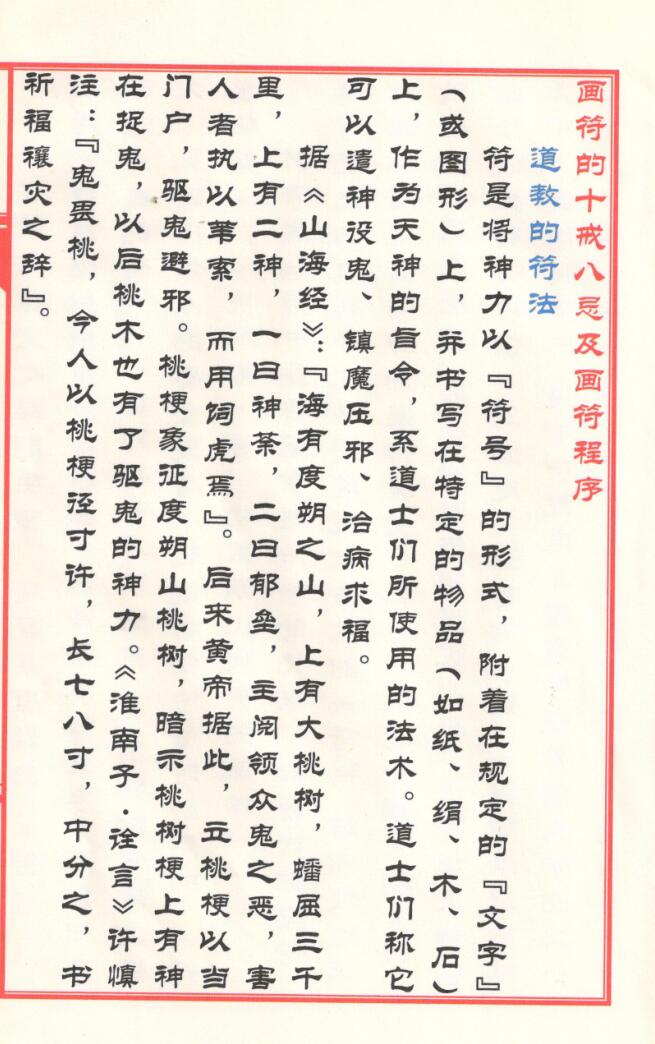 画符的十戒八忌及画符程序
道教的符法
符是将神力以『符号』的形式，附着在规定的『文字』
（或图形）上，并书写在特定的物品（如纸、绢、木、石）
上，作为天神的旨令，系道士们所使用的法术。道士们称它
可以遣神役鬼、镇魔压邪、治病求福。
据《山海经》：『海有度朔之山，上有大桃树，蟠屈三千
里，上有二神，一曰神荼，二曰郁垒，主阅领众鬼之恶，害
人者执以苇索，而用饲虎焉』。后来黄帝据此，立桃梗以当
门户，驱鬼避邪。桃梗象征度朔山桃树，暗示桃树梗上有神
在捉鬼，以后桃木也有了驱鬼的神力。《淮南子·诠言》许慎
注：『鬼畏桃，今人以桃梗径寸许，长七八寸，中分之，书
祈福禳灾之辞』。